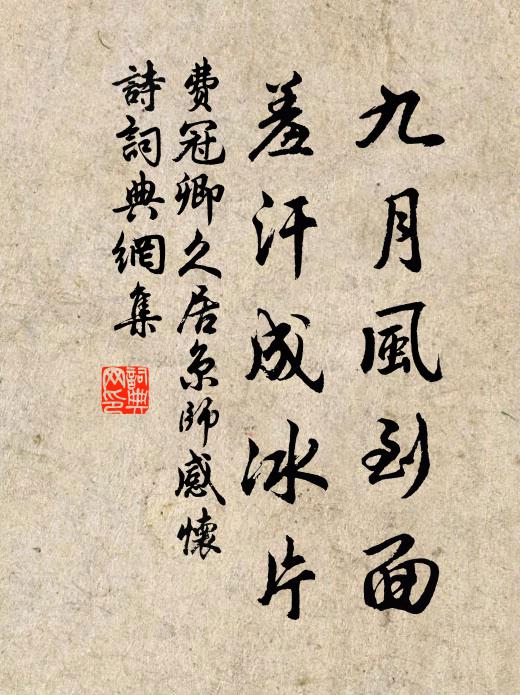 九月風到面
羞汗成冰片
費冠卿久居京師感懷
詩詞典網集
詞典網印